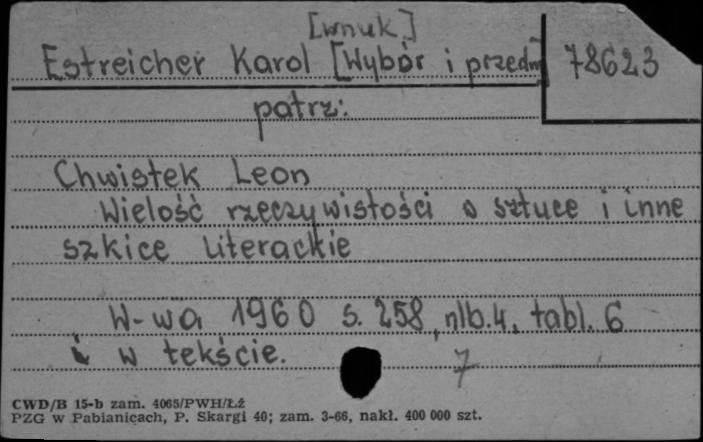 [wnuk]
Estreicher Karol [Wybór i przedm] 78623
patrz:
Chwistek Leon
Wielość rzeczywistości w sztuce i inne
szkice literackie
W-wa 1960 s. 258, nlb. 4. tabl. 6
i w tekście.
7
CWD/B 15-b zam. 4065/PWH/Łź
PZG w Pabianicach, P. Skargi 40; zam. 3-66, nakł. 400 000 szt.